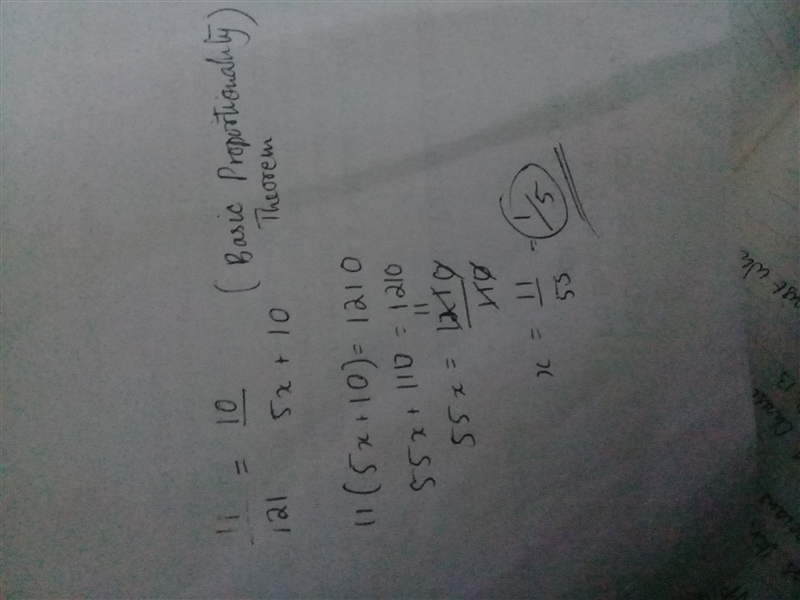 11/121 = 10/5x + 10 (Basic Proportionality Theorem)
11(5x+10) = 1210
55x + 110 = 1210
55x = 1210/110 11
x = 11/55 = 1/5